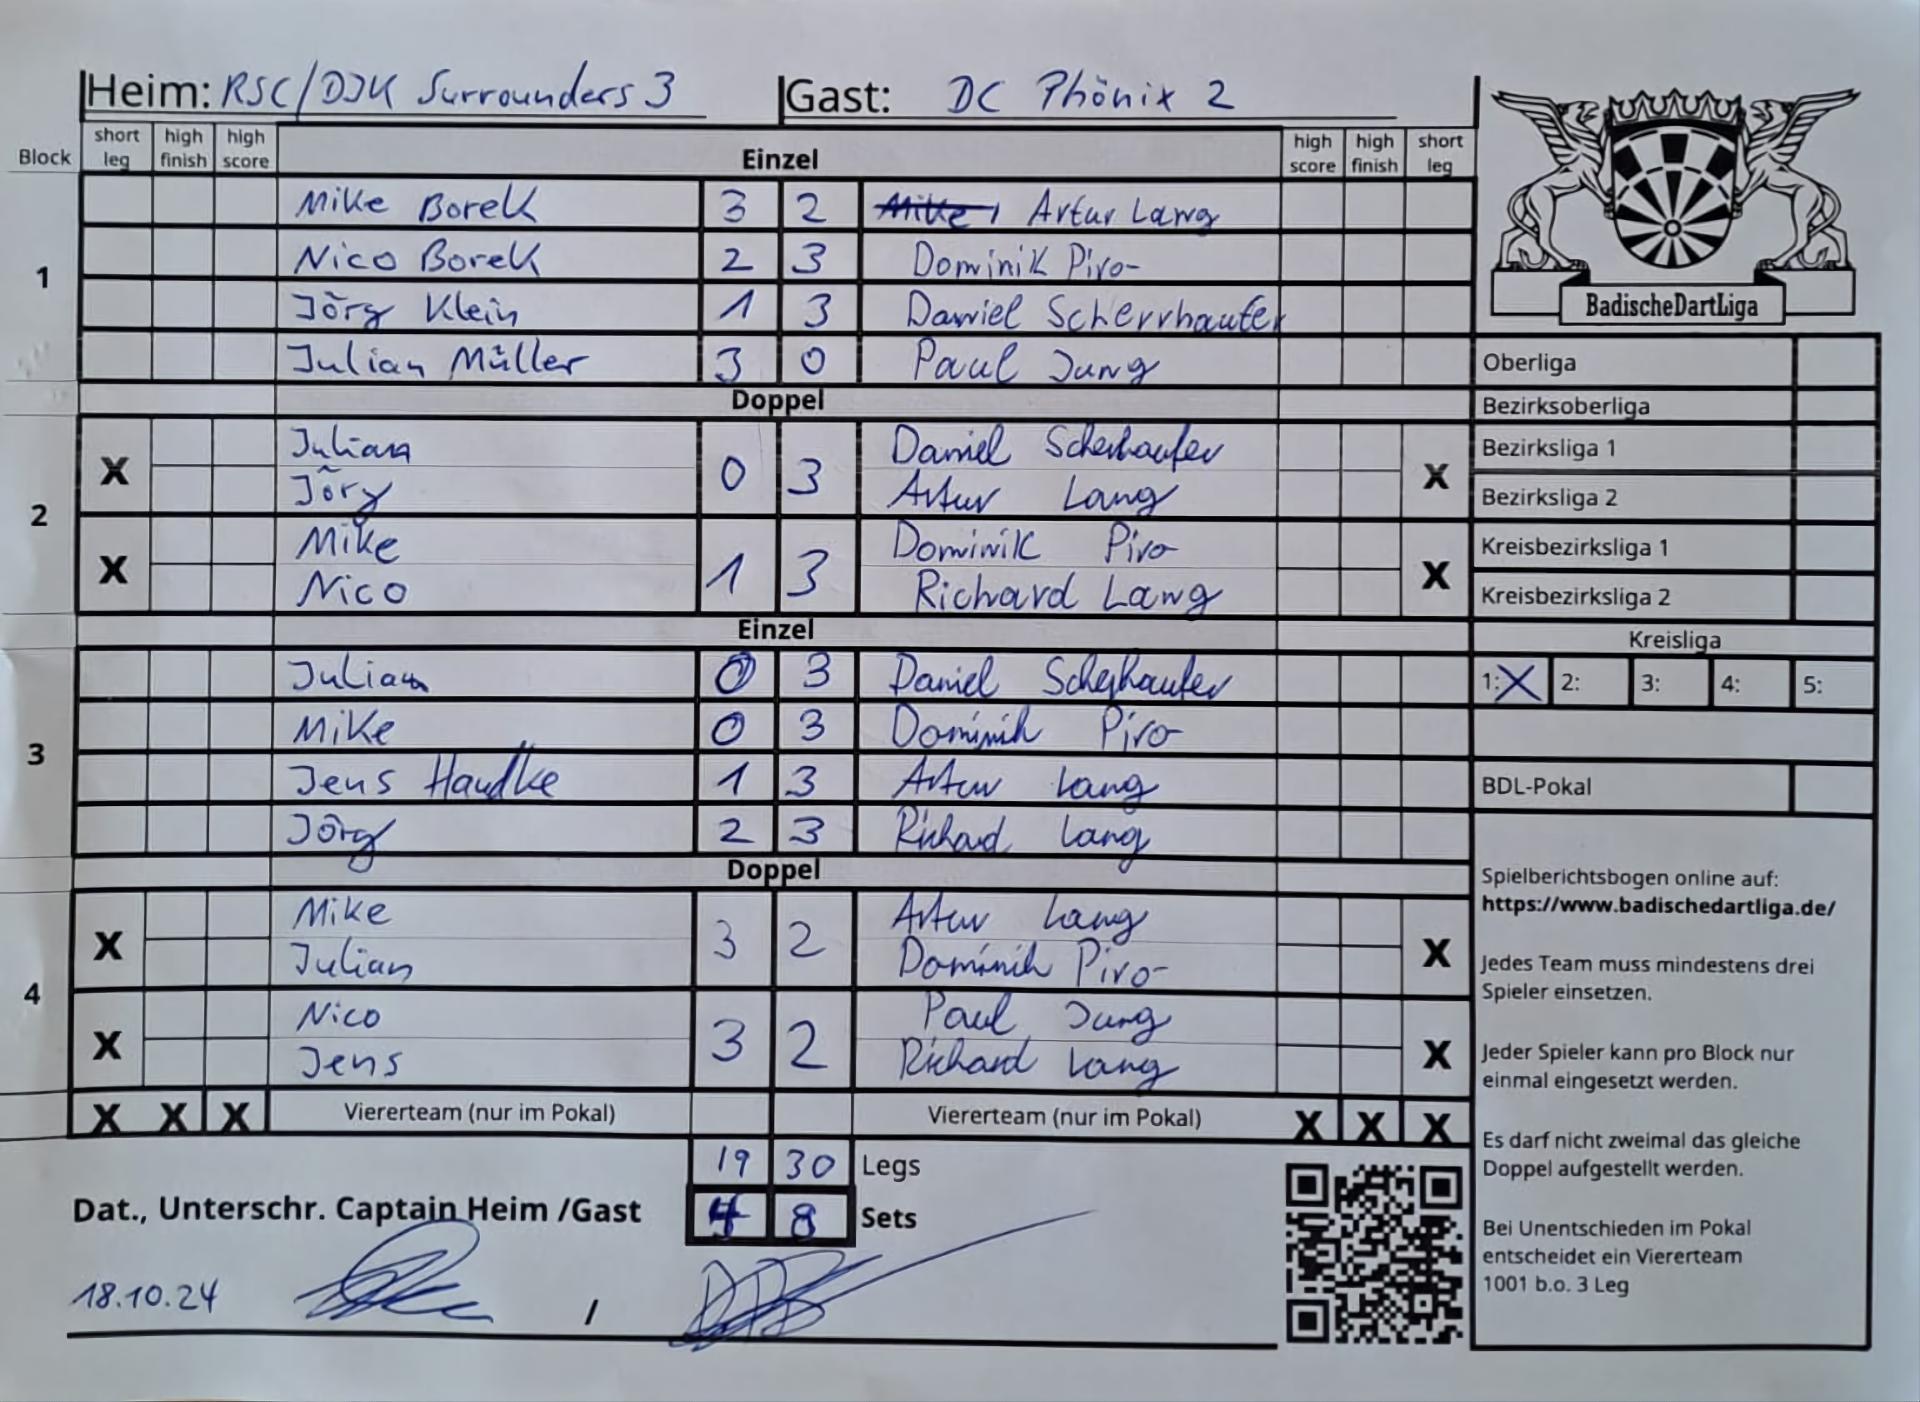 Heim: RSC/DJK Surrounders 3 Gast: DC Phönix 2
Block short leg high finish high score Einzel high score high finish short leg
1
Mike Borek 3 2 Artur Lang
Nico Borek 2 3 Dominik Piro
Jörg Klein 1 3 Daniel Scherrhaufer
Julian Müller 3 0 Paul Jung
Doppel
2
X Julian 0 3 Daniel Scherhaufer X
Jörg Artur Lang
X Mike 1 3 Dominik Piro X
Nico Richard Lang
Einzel
3
Julian 0 3 Daniel Scherhaufer
Mike 0 3 Dominik Piro
Jens Handke 1 3 Artur Lang
Jörg 2 3 Richard Lang
Doppel
4
X Mike 3 2 Artur Lang X
Julian Dominik Piro
X Nico 3 2 Paul Jung X
Jens Richard Lang
X X X Viererteam (nur im Pokal) Viererteam (nur im Pokal) X X X
19 30 Legs
4 8 Sets
Dat., Unterschr. Captain Heim /Gast
18.10.24 /
BadischeDartLiga
Oberliga
Bezirksoberliga
Bezirksliga 1
Bezirksliga 2
Kreisbezirksliga 1
Kreisbezirksliga 2
Kreisliga
1: X 2: 3: 4: 5:
BDL-Pokal
Spielberichtsbogen online auf:
https://www.badischedartliga.de/
Jedes Team muss mindestens drei
Spieler einsetzen.
Jeder Spieler kann pro Block nur
einmal eingesetzt werden.
Es darf nicht zweimal das gleiche
Doppel aufgestellt werden.
Bei Unentschieden im Pokal
entscheidet ein Viererteam
1001 b.o. 3 Leg